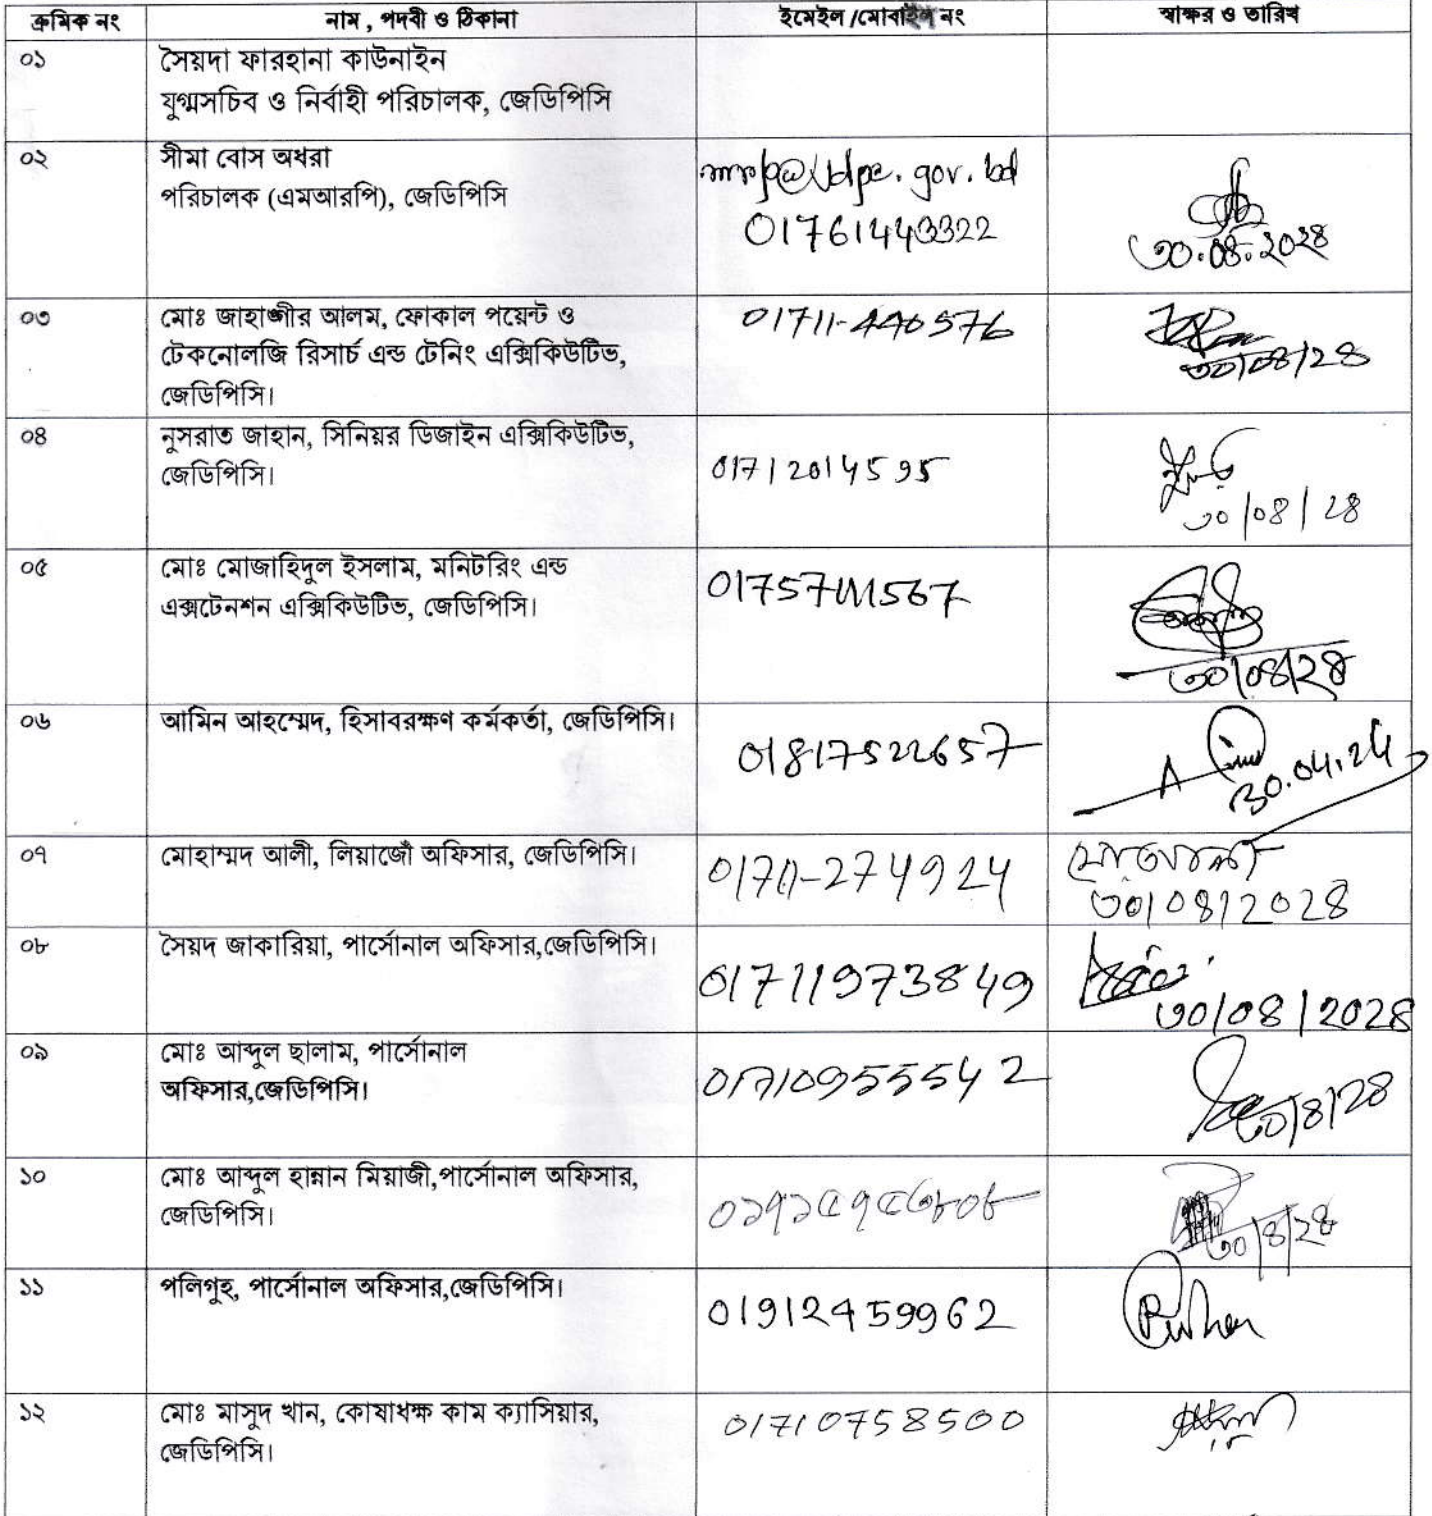 ক্রমিক নং নাম , পদবী ও ঠিকানা ইমেইল /মোবাইল নং স্বাক্ষর ও তারিখ
০১ সৈয়দা ফারহানা কাউনাইন
যুগ্মসচিব ও নির্বাহী পরিচালক, জেডিপিসি
০২ সীমা বোস অথরা
পরিচালক (এমআরপি), জেডিপিসি
01761443322
৩০.০৪.২০২৪
০৩ মোঃ জাহাঙ্গীর আলম, ফোকাল পয়েন্ট ও 01711-440576
টেকনোলজি রিসার্চ এন্ড টেনিং এক্সিকিউটিভ, ৩০/০৪/২৪
জেডিপিসি।
০৪ নুসরাত জাহান, সিনিয়র ডিজাইন এক্সিকিউটিভ,
জেডিপিসি। 01712014595
৩০/০৪/২৪
০৫ মোঃ মোজাহিদুল ইসলাম, মনিটরিং এন্ড
এক্সটেনশন এক্সিকিউটিভ, জেডিপিসি।
৩০/০৪/২৪
০৬ আমিন আহম্মেদ, হিসাবরক্ষণ কর্মকর্তা, জেডিপিসি।
01817522657 30.04.24
০৭ মোহাম্মদ আলী, লিয়াজোঁ অফিসার, জেডিপিসি।
01711-274924 ৩০/০৪/২০২৪
০৮ সৈয়দ জাকারিয়া, পার্সোনাল অফিসার,জেডিপিসি।
01711973849 ৩০/০৪/২০২৪
০৯ মোঃ আব্দুল ছালাম, পার্সোনাল
অফিসার,জেডিপিসি। 01710955542 ৩০/৪/২৪
১০ মোঃ আব্দুল হান্নান মিয়াজী,পার্সোনাল অফিসার,
জেডিপিসি। ০১৭১৫৭৫৩৮০৮ ৩০/৪/২৪
১১ পলিগুহ, পার্সোনাল অফিসার,জেডিপিসি।
01912459962
১২ মোঃ মাসুদ খান, কোষাধক্ষ কাম ক্যাসিয়ার, 01710758500
জেডিপিসি।